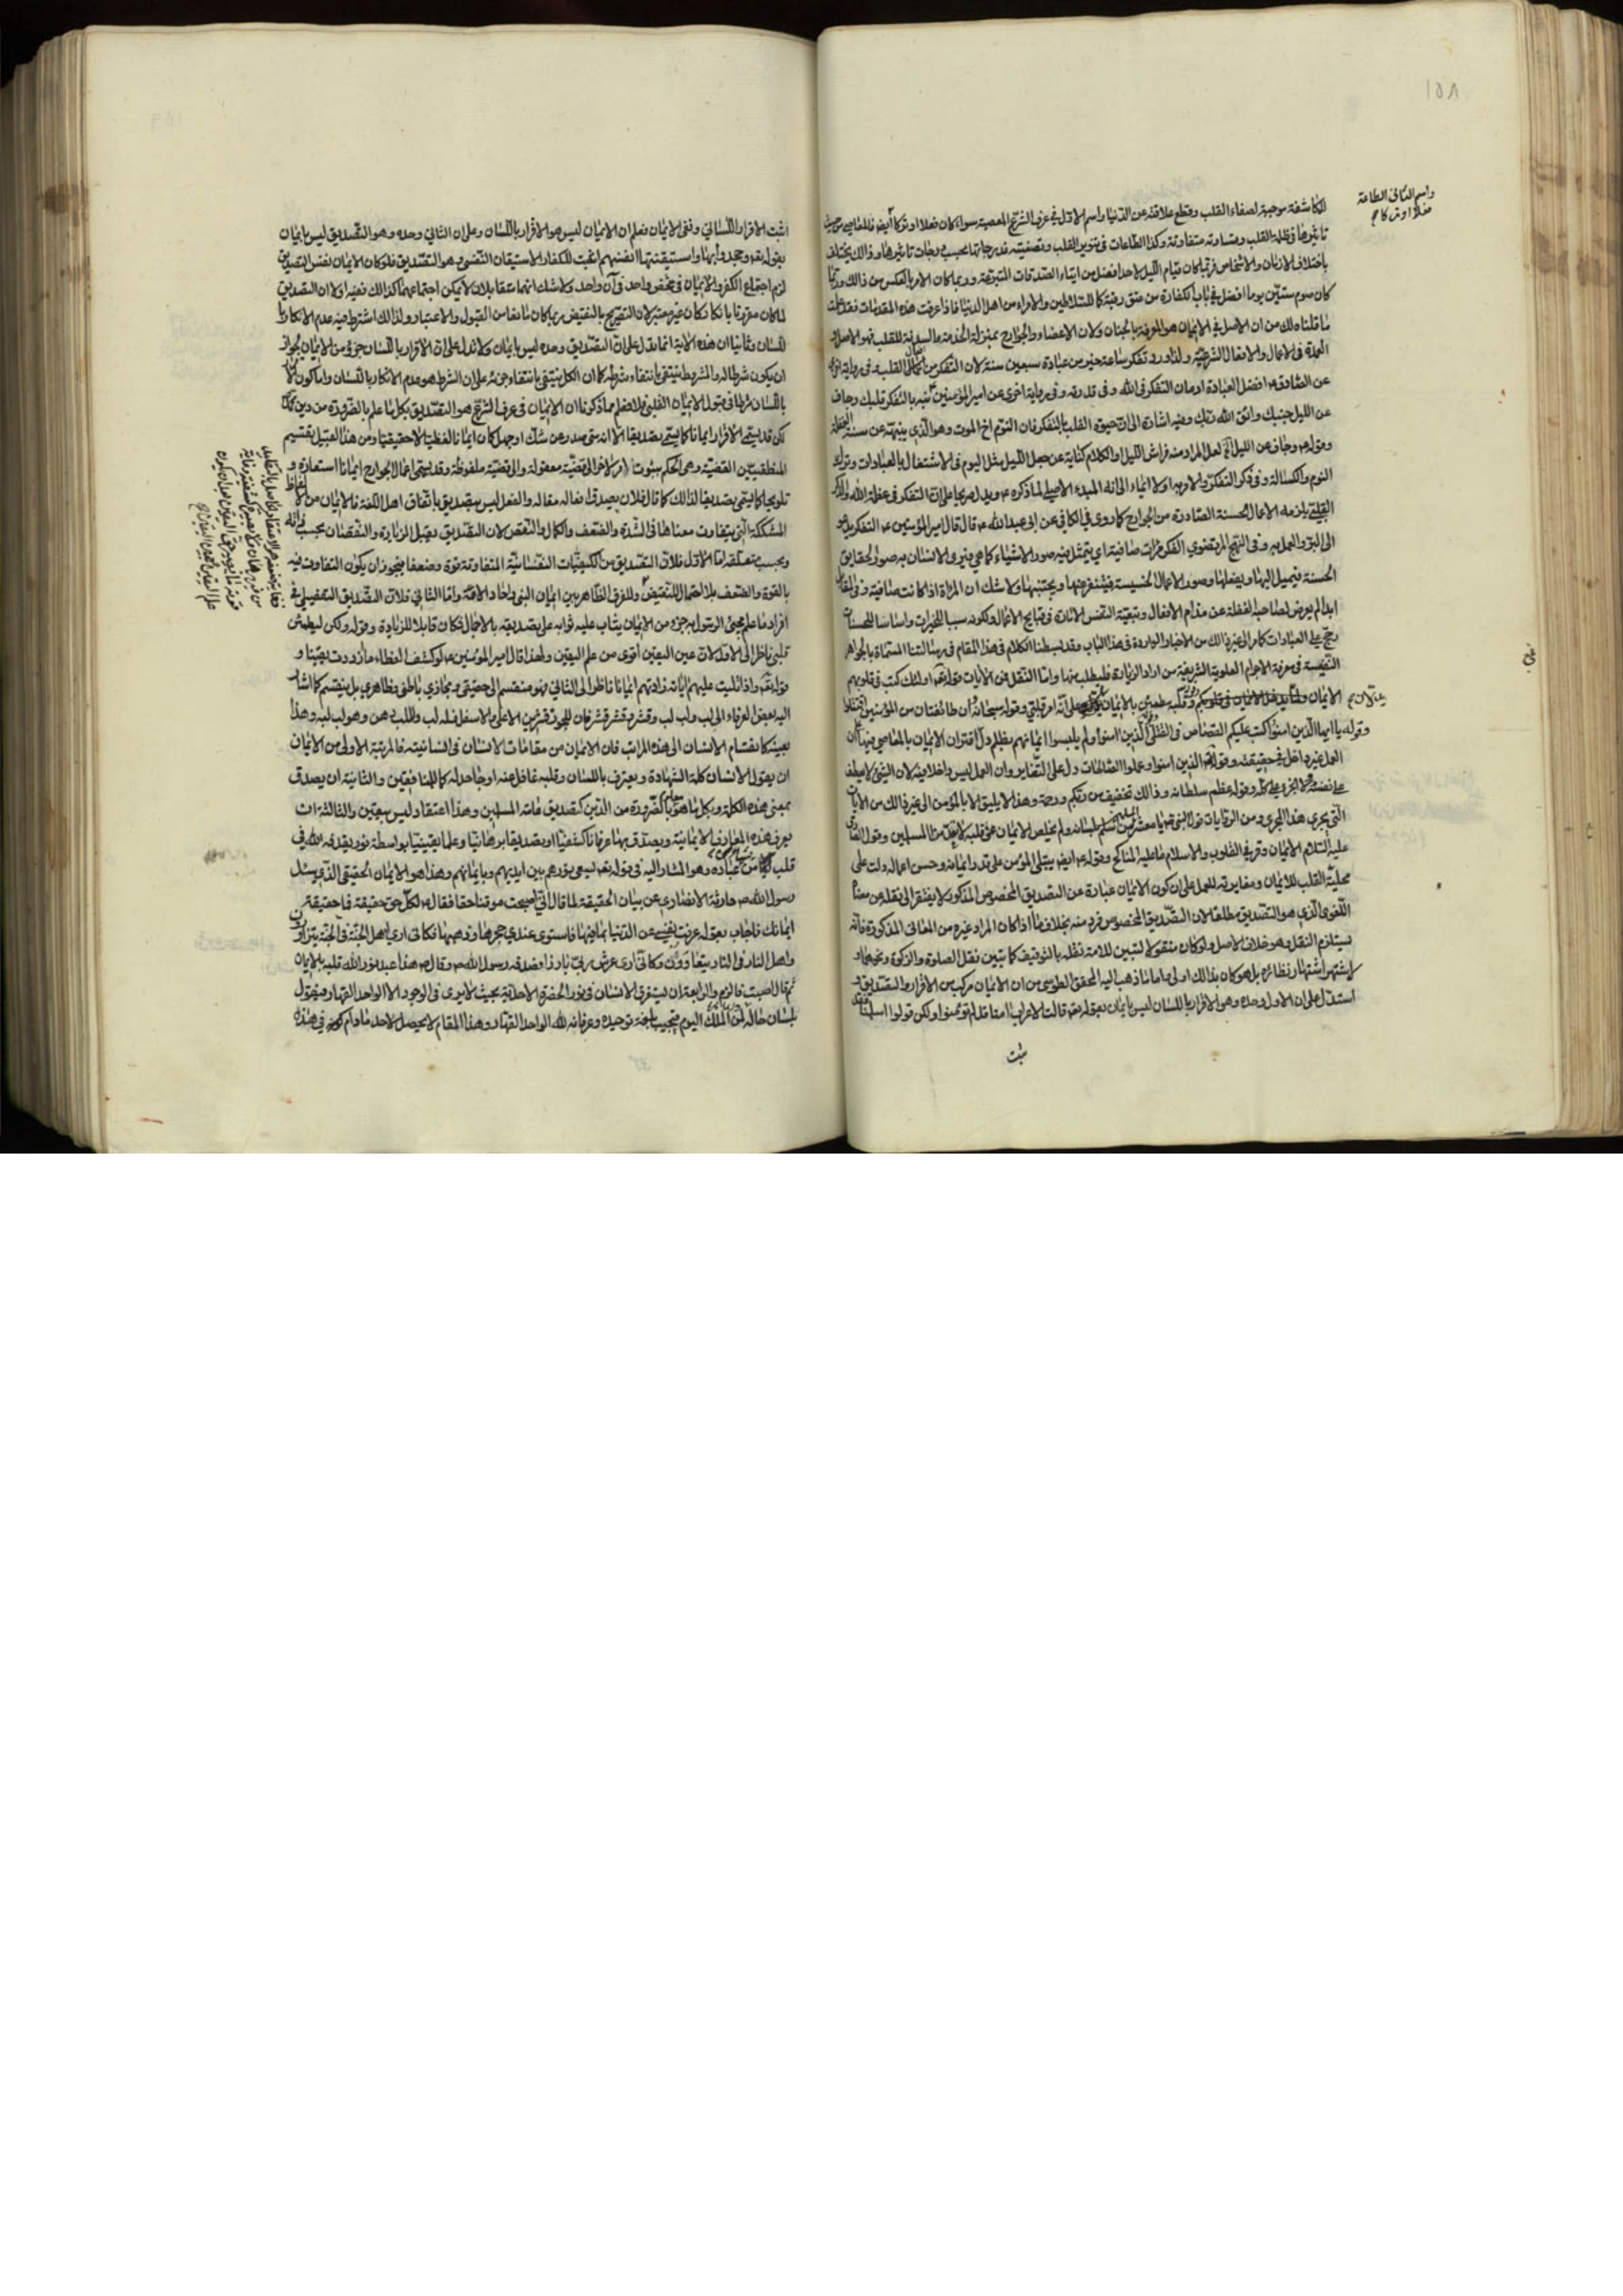 ١٥٨
واسم الثاني الطاعة
فعلا او تركا صح
للمكاشفة موجبة لصفاء القلب وقطع علاقته عن الدنيا واسم الاول في عرف الشرع المعصية سواء كان فعلا او تركا ايضا فالمعاصي من حيث
تاثيرها في ظلمة القلب وقساوته متفاوتة وكذا الطاعات في تنوير القلب وتصفيته فدرجاتها بحسب درجات تاثيرها وذالك يختلف
باختلاف الازمان والاشخاص فربما كان قيام الليل لاحد افضل من ايتاء الصدقات المتبرعة وربما كان الامر بالعكس من ذالك وربما
كان صوم ستين يوما افضل في باب الكفارة من عتق رقبة كما للسلاطين والامراء من اهل الدنيا فاذا عرفت هذه المقدمات فقد علمت
ما قلناه لك من ان الاصل في الايمان هو المعرفة بالجنان ولان الاعضاء والجوارح بمنزلة الخدمة والسدنة للقلب فهو الاصل و
العمدة في الاعمال والافعال الشرعية ولذا ورد تفكر ساعة خير من عبادة سبعين سنة لان التفكر من اعمال القلب وفي رواية اخرى
عن الصادق ع افضل العبادة ادمان التفكر في الله وفي قدرته وفي رواية اخرى عن امير المؤمنين ع نبه بالتفكر قلبك وجاف
عن الليل جنبك واتق الله ربك وفيه اشارة الى ان حيوة القلب بالتفكر فان النوم اخ الموت وهو الذي ينبهه عن سنة الغفلة
وقوله وجاف عن الليل لعل المراد منه فراش الليل او الكلام كناية عن جعل الليل مثل اليوم في الاشتغال بالعبادات وترك
النوم والكسالة وفي ذكر التفكر والامر به اولا ايماء الى انه المبدء الاصيل لما ذكره ع ويدل صريحا على ان التفكر في عظمة الله والذكر
القلبي يلزمه الاعمال الحسنة الصادرة من الجوارح كما روي في الكافي عن ابي عبد الله ع قال قال امير المؤمنين ع التفكر يدعو
الى البر والعمل به وفي النهج المرتضوي الفكر مرات صافية اي يتمثل فيه صور الاشياء كما هي فيرى الانسان به صور الحقايق
الحسنة فيميل اليها ويفعلها وصور الاعمال الخسيسة فيتنفر عنها ويجتنبها ولا شك ان المراة اذا كانت صافية
ابدا لم يعرض لصاحبه الغفلة عن مذام الافعال وتبعية النفس الامارة في قبايح الاعمال ولكونه سببا للخيرات واساسا للحسنات
رجح على العبادات كما مر الى غير ذالك من الاخبار الواردة في هذا الباب وقد بسطنا الكلام في هذا المقام في رسالتنا المسماة بالجواهر
النفيسة في معرفة الاجرام العلوية الشريفة من اراد الزيادة فليطلب منها واما النقل فمن الايات قوله تعالى اولئك كتب في قلوبهم
الايمان ولما يدخل الايمان في قلوبكم وقلبه مطمئن بالايمان على انه امر قلبي وقوله سبحانه وان طائفتان من المؤمنين اقتتلوا
وقوله يا ايها الذين امنوا كتب عليكم القصاص في القتلى الذين امنوا ولم يلبسوا ايمانهم بظلم دل اقتران الايمان بالمعاصي فيها ان
العمل غير داخل في حقيقته وقوله الذين امنوا وعملوا الصالحات دل على التغاير وان العمل ليس داخلا فيه لان الشيئ لا يعطف
على نفسه ولا الجزء على كله وقوله عظم سلطانه وذالك تخفيف من ربكم ورحمة وهذا لا يليق الا بالمؤمن الى غير ذالك من الايات
التي يجري هذا المجرى ومن الروايات قول النبي ص يا معشر من اسلم بلسانه ولم يخلص الايمان الى قلبه لا تذموا المسلمين وقول الصادق
عليه السلام الايمان وقر في القلوب والاسلام ما عليه المناكح وقوله ع ايضا يبتلى المؤمن على قدر ايمانه وحسن اعماله دلت على
محلية القلب للايمان ومغايرته للعمل على ان كون الايمان عبارة عن التصديق المخصوص المذكور لا يفتقر الى نقله عن معناه
اللغوي الذي هو التصديق مطلقا لان التصديق المخصوص فرد منه بخلاف ما اذا كان المراد غيره من المعاني المذكورة فانه
يستلزم النقل وهو خلاف الاصل ولو كان منقولا لتبين للامة نقله بالتوقيف كما تبين نقل الصلوة والزكوة ونحوهما و
لاشتهر اشتهار نظائره بل هو كان بذالك اولى واما ما ذهب اليه المحقق الطوسي من ان الايمان مركب من الاقرار والتصديق و
استدل على ان الاول وحده وهو الاقرار باللسان ليس بايمان بقوله تعالى قالت الاعراب امنا قل لم تؤمنوا ولكن قولوا اسلمنا فقد
ثبت
اثبت الاقرار اللساني ونفى الايمان فعلم ان الايمان ليس هو الاقرار باللسان وعلى ان الثاني وحده وهو التصديق ليس بايمان
بقوله تعالى وجحدوا بها واستيقنتها انفسهم اثبت للكفار الاستيقان النفسي وهو التصديق فلو كان الايمان نفس التصديق
لزم اجتماع الكفر والايمان في شخص واحد في آن واحد ولا شك انهما متقابلان لا يمكن اجتماعهما كذالك ففيه اولا ان التصديق
لما كان مقرونا بانكار كان غير معتبر لان التصريح بالنقيض ربما كان مانعا من القبول والاعتبار ولذالك اشترط فيه عدم الانكار با
للسان وثانيا ان هذه الاية انما يدل على ان التصديق وحده ليس بايمان ولا تدل على ان الاقرار باللسان جزء من الايمان لجواز
ان يكون شرطا له والمشروط ينتفي بانتفاء شرطه كما ان الكل ينتفي بانتفاء جزئه على ان الشرط هو عدم الانكار باللسان واما كون الاقرار
باللسان شرطا في قبول الايمان القلبي فلا فعلم مما ذكرنا ان الايمان في عرف الشرع هو التصديق بكل ما علم بالضرورة من دين محمد ص
لكن قد يسمى الاقرار ايمانا كما يسمى تصديقا الا انه متى صدر عن شك او جهل كان ايمانا لفظيا لا حقيقيا ومن هذا القبيل تقسيم
المنطقيين القضية وهي الحكم بثبوت امر لآخر الى قضية معقولة والى قضية ملفوظة وقد يسمى اعمال الجوارح ايمانا استعارة و
تلويحا كما يسمى تصديقا لذالك كما قال فلان يصدق افعاله مقاله والفعل ليس بتصديق باتفاق اهل اللغة فالايمان من الالفاظ
المشككة التي يتفاوت معناها في الشدة والضعف والكمال والنقص لان التصديق يقبل الزيادة والنقصان بحسب ذاته
وبحسب متعلقه اما الاول فلان التصديق من الكيفيات النفسانية المتفاوتة قوة وضعفا فيجوز ان يكون التفاوت فيه
بالقوة والضعف بلا احتمال للنقيض وللفرق الظاهر بين ايمان النبي واحاد الامة واما الثاني فلان التصديق التفصيلي في
افراد ما علم مجيئ الرسول به جزء من الايمان يثاب عليه ثوابه على تصديقه بالاجمال فكان قابلا للزيادة وقوله ولكن ليطمئن
قلبي ناظر الى الاول لان عين اليقين أقوى من علم اليقين ولهذا قال امير المؤمنين ع لو كشف الغطاء ما ازددت يقينا و
قوله تعالى واذا تليت عليهم اياته زادتهم ايمانا ناظر الى الثاني فهو منقسم الى حقيقي ومجازي باطني وظاهري بل ينقسم كما اشار
اليه بعض العرفاء الى لب ولب لب وقشر وقشر قشر فان للجوز قشرين الاعلى والاسفل فله لب وللب دهن وهو لب لبه وهذا
بعينه كانقسام الانسان الى هذه المراتب فان الايمان من مقامات الانسان في انسانيته فالمرتبة الاولى من الايمان
ان يقول الانسان كلمة الشهادة ويعترف باللسان وقلبه غافل عنه او جاحد له كالمنافقين والثانية ان يصدق
بمعنى هذه الكلمة وبكل ما هو معلوم بالضرورة من الدين كتصديق عامة المسلمين وهذا اعتقاد وليس بيقين والثالثة ان
يعرف هذه المعارف الايمانية ويصدق بها عرفانا كشفيا او تصديقا برهانيا وعلما يقينيا بواسطة نور يقذفه الله في
قلب من يشاء من عباده وهو المشار اليه في قوله تعالى يسعى نورهم بين ايديهم وبايمانهم وهذا هو الايمان الحقيقي الذي سئل
رسول الله ص حارثة الانصاري عن بيان الحقيقة لما قال اني اصبحت موقنا حقا فقال له لكل حق حقيقة فما حقيقة
ايمانك فاجاب بقوله عرفت نفسي عن الدنيا بما فيها فاستوى عندي حجرها وذهبها فكاني ارى اهل الجنة في الجنة يتزاورون
واهل النار في النار يتعاوون وكاني ارى عرش ربي بارزا فصدقه رسول الله ص وقال ص هذا عبد نور الله قلبه بالايمان
ثم قال اصبت فالزم والرابعة ان يستغرق الانسان في نور الحضرة الاحدية بحيث لا يرى في الوجود الا الواحد القهار فيقول
بلسان حاله لمن الملك اليوم فيجيب بلغة توحيده وعرفانه لله الواحد القهار وهذا المقام لا يحصل لاحد ما دام كونه في هذه